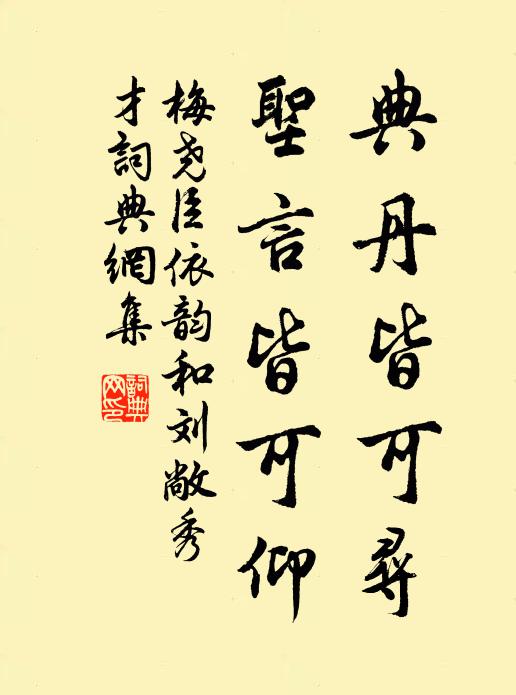 典丹皆可尋
聖言皆可仰
梅尧臣依韵和刘敞秀
才詞典網集
詞典
网印